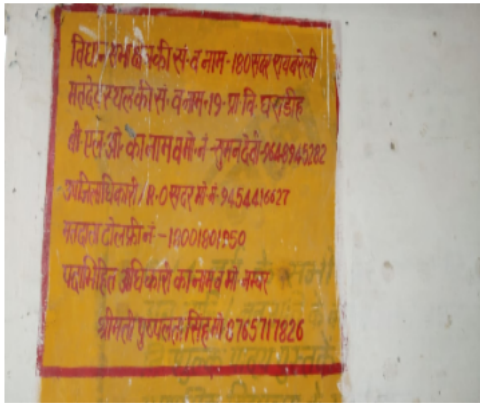 विधानसभा क्षेत्र की सं० व नाम - 180 सदर रायबरेली
मतदेय स्थल की सं० व नाम - 19 - प्रा० वि० घरडीह
बी० एल० ओ० का नाम व मो० नं० - सुमन देवी - 9648945282
उपजिलाधिकारी / R-O सदर मो० नं० - 9454416627
मतदाता टोल फ्री नं० - 18001801950
पदाभिहित अधिकारी का नाम व मो० नम्बर
श्रीमती पुष्पलता सिंह मो० 8765717826